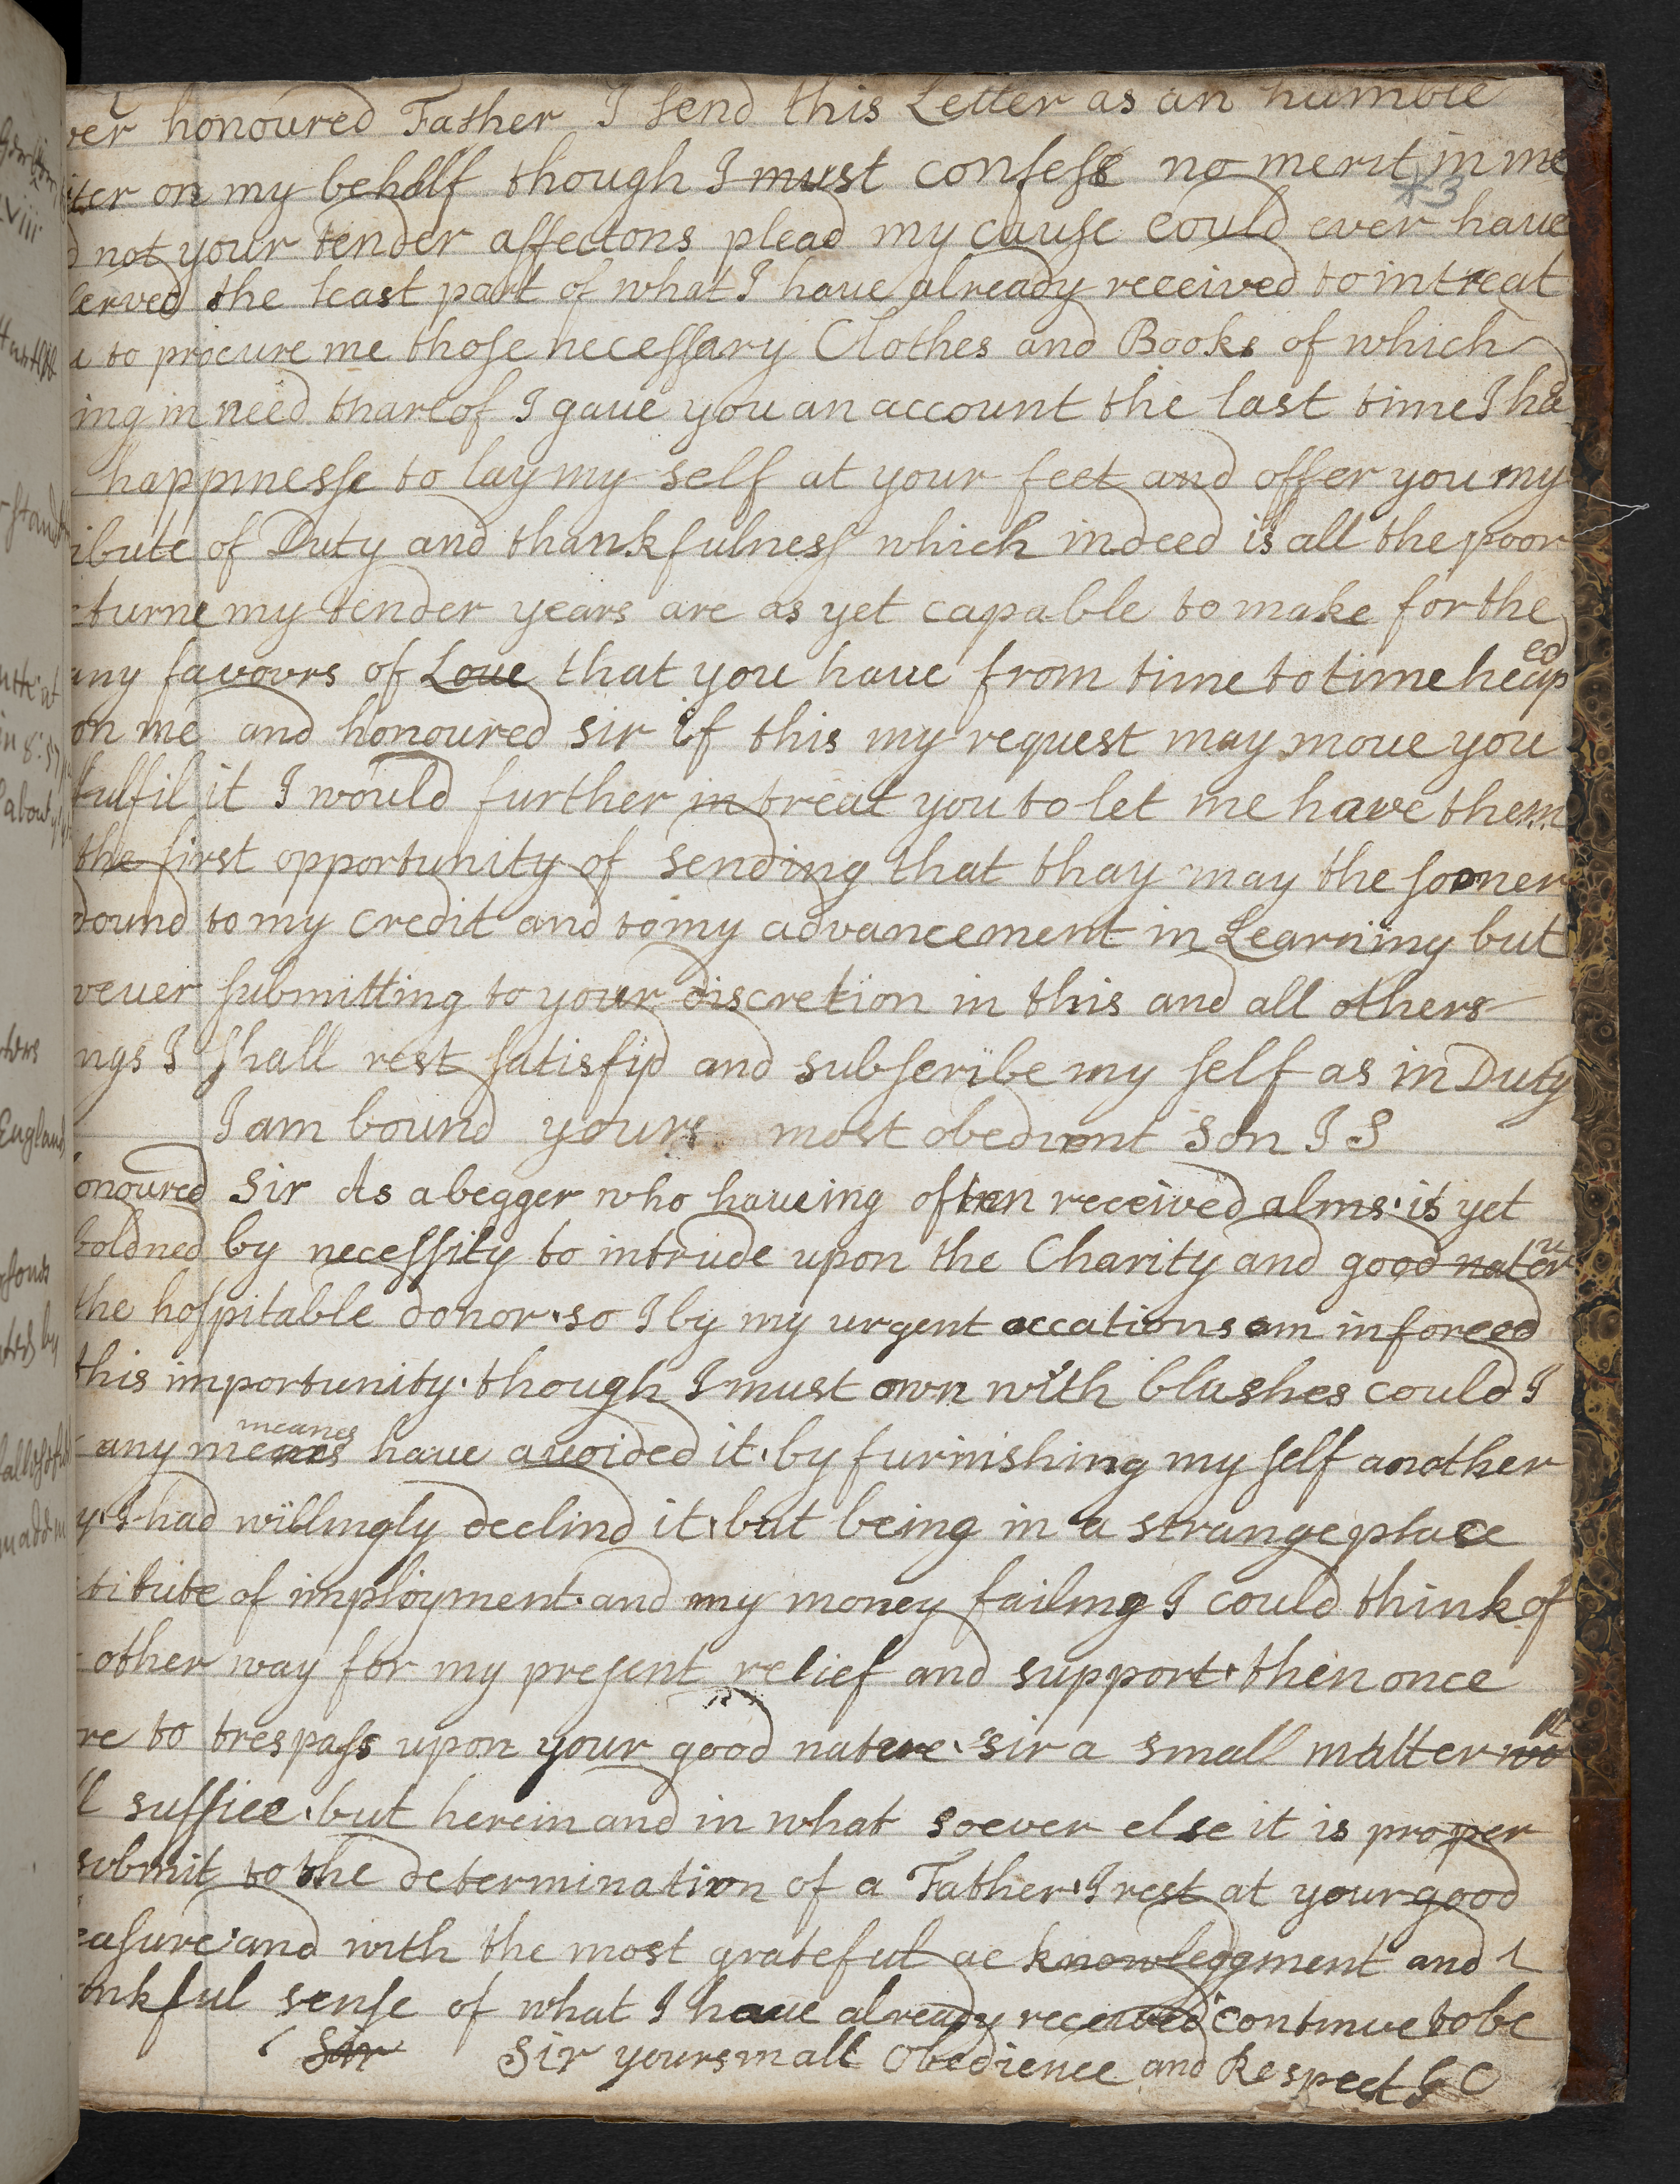 ver honoured Father I send this Letter as an humble
iter on my behalf though I must confess no merit in me
*3
d not your tender affectons plead my cause could ever have
served the least part of what I have already received to intreat
u to procure me those necessary Clothes and Books of which
ing in need thareof I gave you an account the last time I had
happinesse to lay my self at your feet and offer you my
ibute of Duty and thankfulness which indeed is all the poor
eturne my tender years are as yet capable to make for the
any favours of Love that you have from time to time heaped
on me and honoured sir if this my request may move you
fulfil it I would further intreat you to let me have them
the first opportunity of sending that thay may the sooner
dound to my credit and to my advancement in Learning but
wever submitting to your discretion in this and all others
ngs I shall rest satisfyd and subscribe my self as in Duty
I am bound yours most obedient son I S
onoured Sir As a begger who haveing often received alms is yet
boldned by necessity to intrude upon the Charity and good nature
the hospitable donor so I by my urgent occations am inforced
this importunity though I must own with blushes could I
meanes
any means have avoided it by furnishing my self another
y I had willingly declind it but being in a strange place
titute of imployment and my money failing I could think of
other way for my present relief and support then once
re to trespass upon your good nature sir a small matter
ll suffice but herein and in what soever else it is proper
submit to the determination of a Father I rest at your good
easure and with the most grateful acknowledgment and
ankful sense of what I have already received continue to be
Sir Sir yours in all Obedience and Respect G C